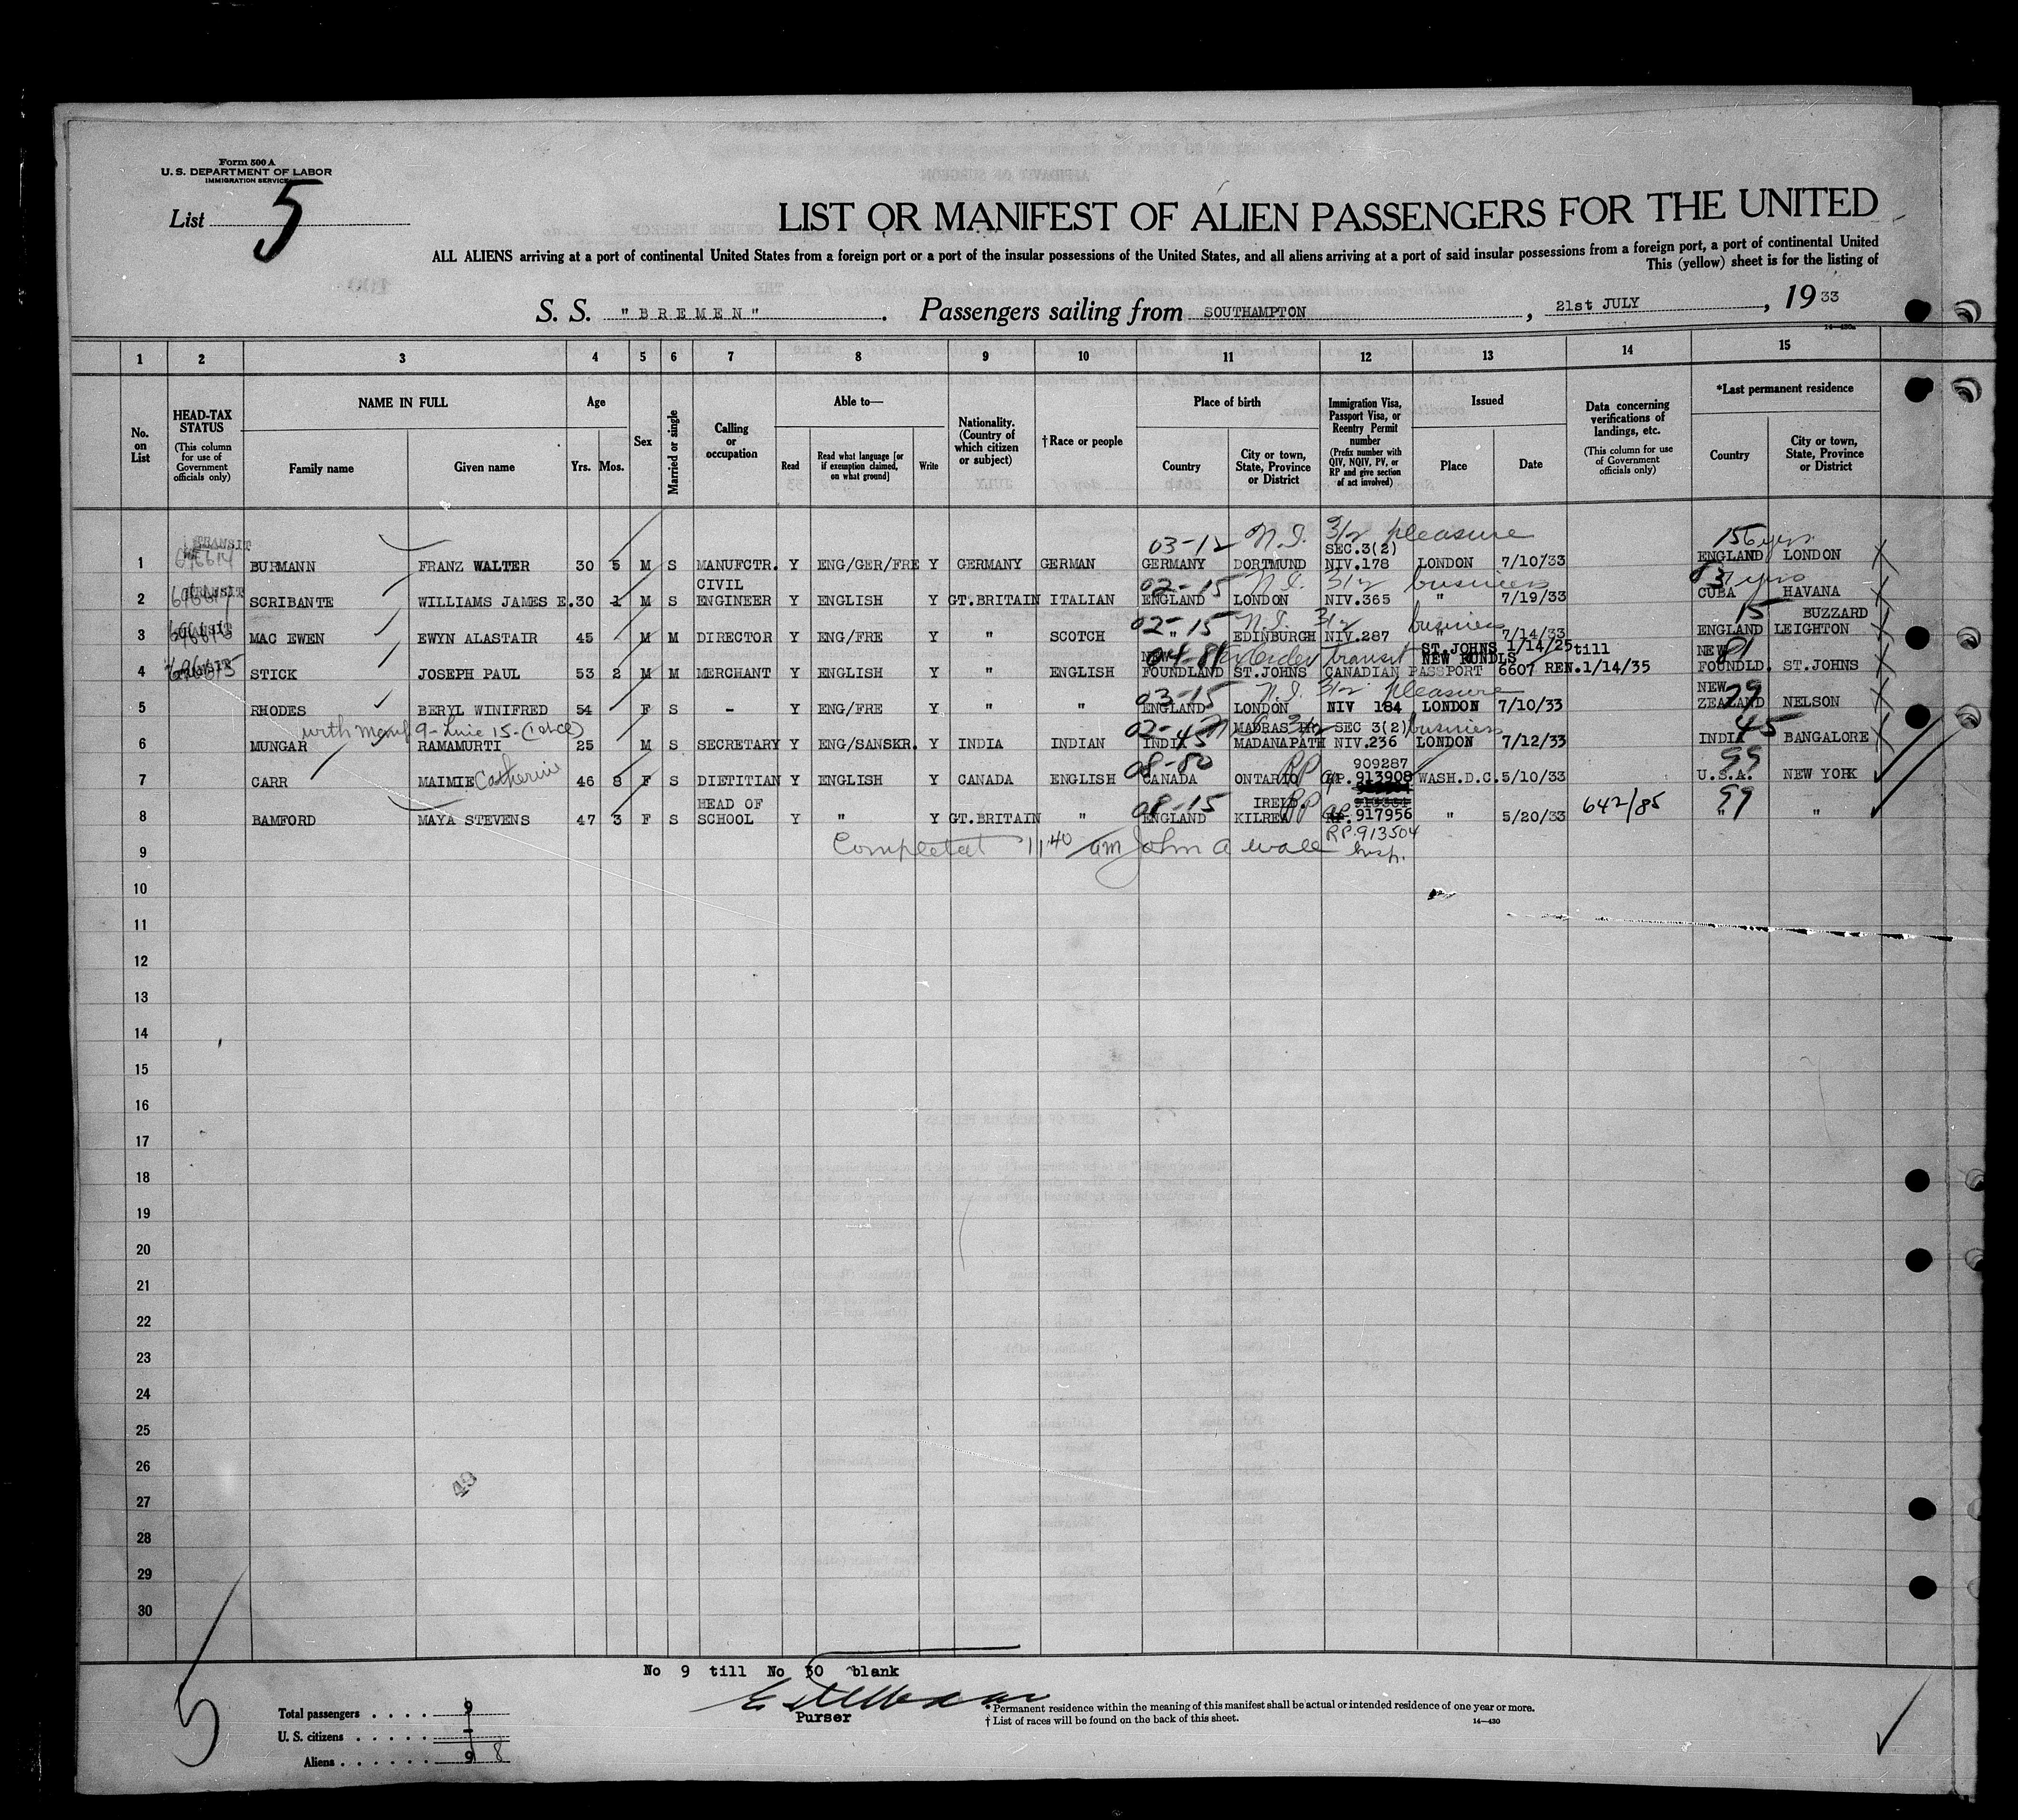 Form 500 A
U. S. DEPARTMENT OF LABOR
IMMIGRATION SERVICE
List 5
LIST OR MANIFEST OF ALIEN PASSENGERS FOR THE UNITED
ALL ALIENS arriving at a port of continental United States from a foreign port or a port of the insular possessions of the United States, and all aliens arriving at a port of said insular possessions from a foreign port, a port of continental United
This (yellow) sheet is for the listing of
S. S. "BREMEN". Passengers sailing from SOUTHAMPTON, 21st JULY, 1933
1 2 3 4 5 6 7 8 9 10 11 12 13 14 15
No. on List
HEAD-TAX STATUS (This column for use of Government officials only)
NAME IN FULL Family name Given name
Age Yrs. Mos.
Sex
Married or single
Calling or occupation
Able to— Read Read what language [or if exemption claimed, on what ground] Write
Nationality. (Country of which citizen or subject)
†Race or people
Place of birth Country City or town, State, Province or District
Immigration Visa, Passport Visa, or Reentry Permit number (Prefix number with QIV, NQIV, PV, or RP and give section of act involved)
Issued Place Date
Data concerning verifications of landings, etc. (This column for use of Government officials only)
*Last permanent residence Country City or town, State, Province or District
TRANSIT 03-12 N.I. 3/2 pleasure 15 6 yrs
SEC.3(2)
1 BURMANN FRANZ WALTER 30 5 M S MANUFCTR. Y ENG/GER/FRE Y GERMANY GERMAN GERMANY DORTMUND NIV.178 LONDON 7/10/33 ENGLAND LONDON
CIVIL 02-15 N.I. 3/2 business yrs
2 SCRIBANTE WILLIAMS JAMES E. 30 1 M S ENGINEER Y ENGLISH Y GT.BRITAIN ITALIAN ENGLAND LONDON NIV.365 " 7/19/33 CUBA HAVANA
02-15 N.I. 3/2 business 15 BUZZARD
3 MAC EWEN EWYN ALASTAIR 45 M M DIRECTOR Y ENG/FRE Y " SCOTCH " EDINBURGH NIV.287 " 7/14/33 ENGLAND LEIGHTON
04-81 transit ST.JOHNS 1/14/25 till NEW 81
4 STICK JOSEPH PAUL 53 2 M M MERCHANT Y ENGLISH Y " ENGLISH FOUNDLAND ST.JOHNS CANADIAN PASSPORT 6607 REN.1/14/35 FOUNDLD. ST.JOHNS
03-15 N.I. 3/2 pleasure NEW 29
5 RHODES BERYL WINIFRED 54 F S - Y ENG/FRE Y " " ENGLAND LONDON NIV 184 LONDON 7/10/33 ZEALAND NELSON
MADRAS SEC 3(2) business 45
6 MUNGAR RAMAMURTI 25 M S SECRETARY Y ENG/SANSKR. Y INDIA INDIAN INDIA MADANAPATH NIV.236 LONDON 7/12/33 INDIA BANGALORE
08-80 RP 909287 99
7 CARR MAIMIE Catherine 46 8 F S DIETITIAN Y ENGLISH Y CANADA ENGLISH CANADA ONTARIO RP.913908 WASH.D.C. 5/10/33 U.S.A. NEW YORK
HEAD OF 08-15 IRELD. RP 99
8 BAMFORD MAYA STEVENS 47 3 F S SCHOOL Y " Y GT.BRITAIN " ENGLAND KILREA RP.917956 " 5/20/33 642/85 " "
RP.913504
9 Completed 11 40 am John A Wall Insp.
10
11
12
13
14
15
16
17
18
19
20
21
22
23
24
25
26
27
28
29
30
49
No 9 till No 30 blank
Purser
Total passengers . . . . 9
U. S. citizens . . . . . -
Aliens . . . . . . 9 8
5
* Permanent residence within the meaning of this manifest shall be actual or intended residence of one year or more.
† List of races will be found on the back of this sheet.
14—430